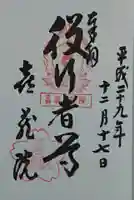 平成二十九年
十二月十七日
奉拝
役行者尊
喜蔵院